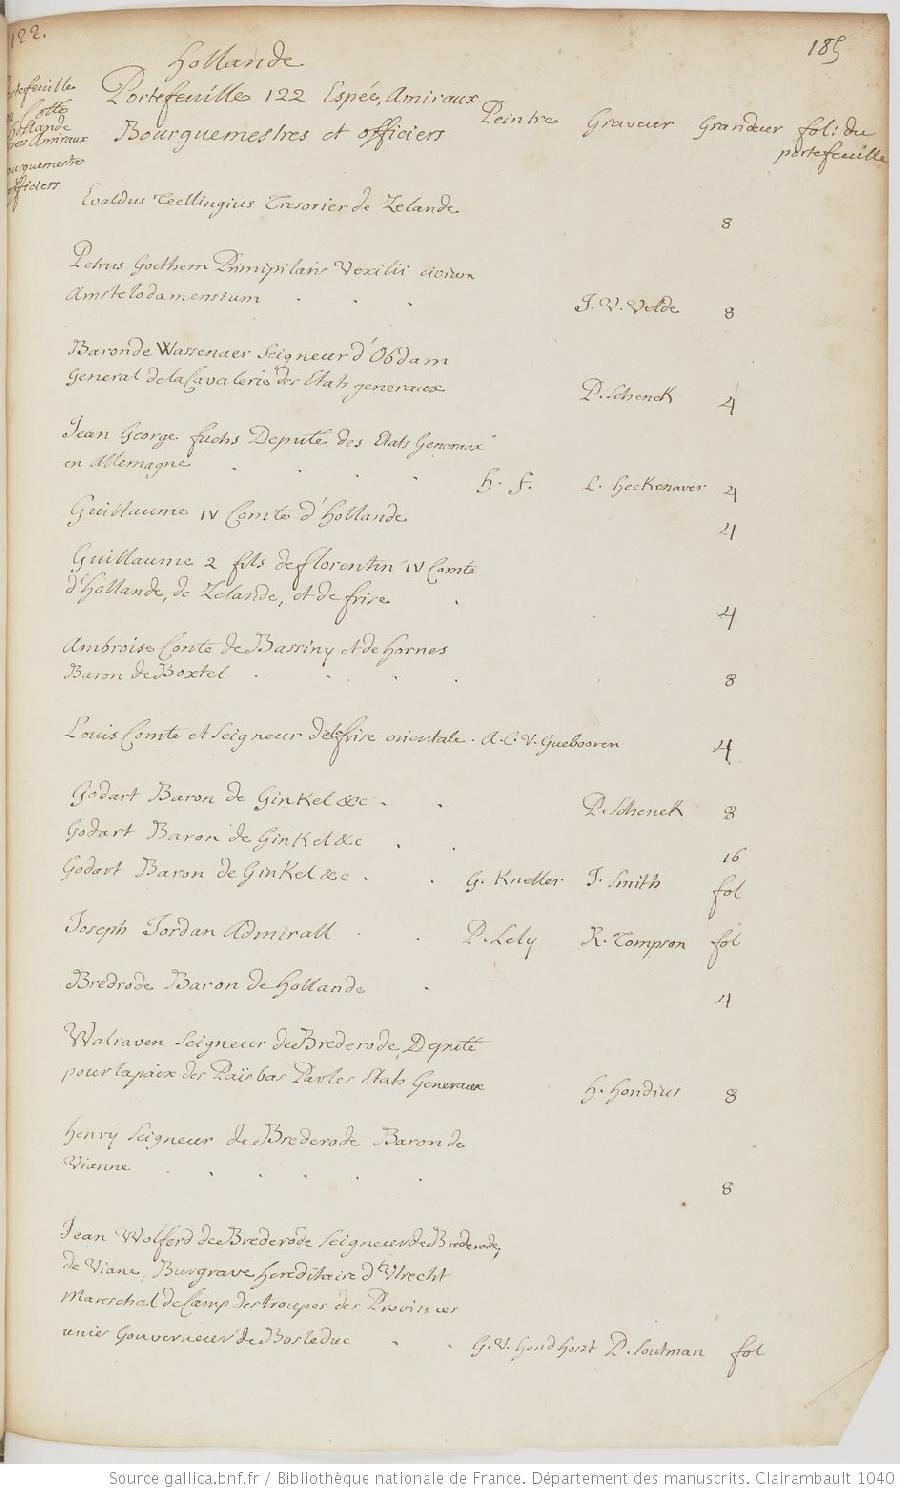 122.
185
Hollande
Portefeuille 122 Espée, Amiraux
Bourguemestres et officiers
Peintre Graveur Grandeur fol: du
portefeuille
Portefeuille
Cotte
Hollande
Amiraux
Bourguemestres
officiers
Evaldus Teellingius Tresorier de Zelande 8
Petrus Goethem Primipilaris Vexilii civium
Amstelodamensium . . . J. V. Velde 8
Baron de Wassenaer Seigneur d'Obdam
General de la Cavalerie des Etats generaux P. Schenck 4
Jean George fuchs Deputé des Etats Generaux
en Allemagne . . . . H. f. L. Heckenaver 4
Guillaume IV Comte d'Hollande 4
Guillaume 2 fils de florentin IV Comte
d'Hollande, de Zelande, et de frise . 4
Ambroise Comte de Bassiny et de Hornes
Baron de Boxtel . . . . 8
Louis Comte et Seigneur de la frise orientale . A. C. V. Guebooren 4
Godart Baron de Ginkel &c . . P. Schenck 8
Godart Baron de Ginkel &c . . 16
Godart Baron de Ginkel &c . . G. Kneller J. Smith fol
Joseph Jordan Admirall . . P. Lely R. Tompson fol
Bredrode Baron de Hollande . 4
Walraven Seigneur de Brederode, Deputé
pour la paix des Païs bas Par les Etats Generaux H. Hondius 8
Henry Seigneur de Brederode Baron de
Vianne . . . . . 8
Jean Wolferd de Brederode Seigneur de Brederode,
de Viane, Burgrave hereditaire d'Utrecht
Mareschal de Camp des troupes des Provinces
unies Gouverneur de Bosleduc . . G. V. Hondhorst P. Soutman fol
Source gallica.bnf.fr / Bibliothèque nationale de France. Département des manuscrits. Clairambault 1040